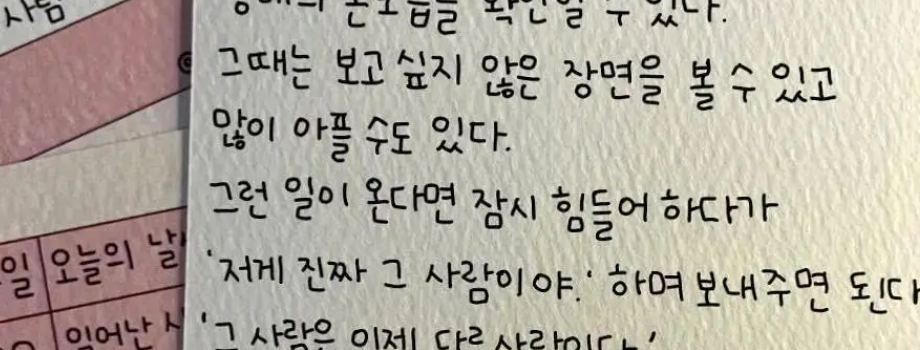 사람
그때는 보고 싶지 않은 장면을 볼 수 있고
많이 아플 수도 있다.
그런 일이 온다면 잠시 힘들어 하다가
'저게 진짜 그 사람이야.' 하며 보내주면 된다
'그 사람은 이제 다른 사람이다.'
일 오늘의 날
일어난